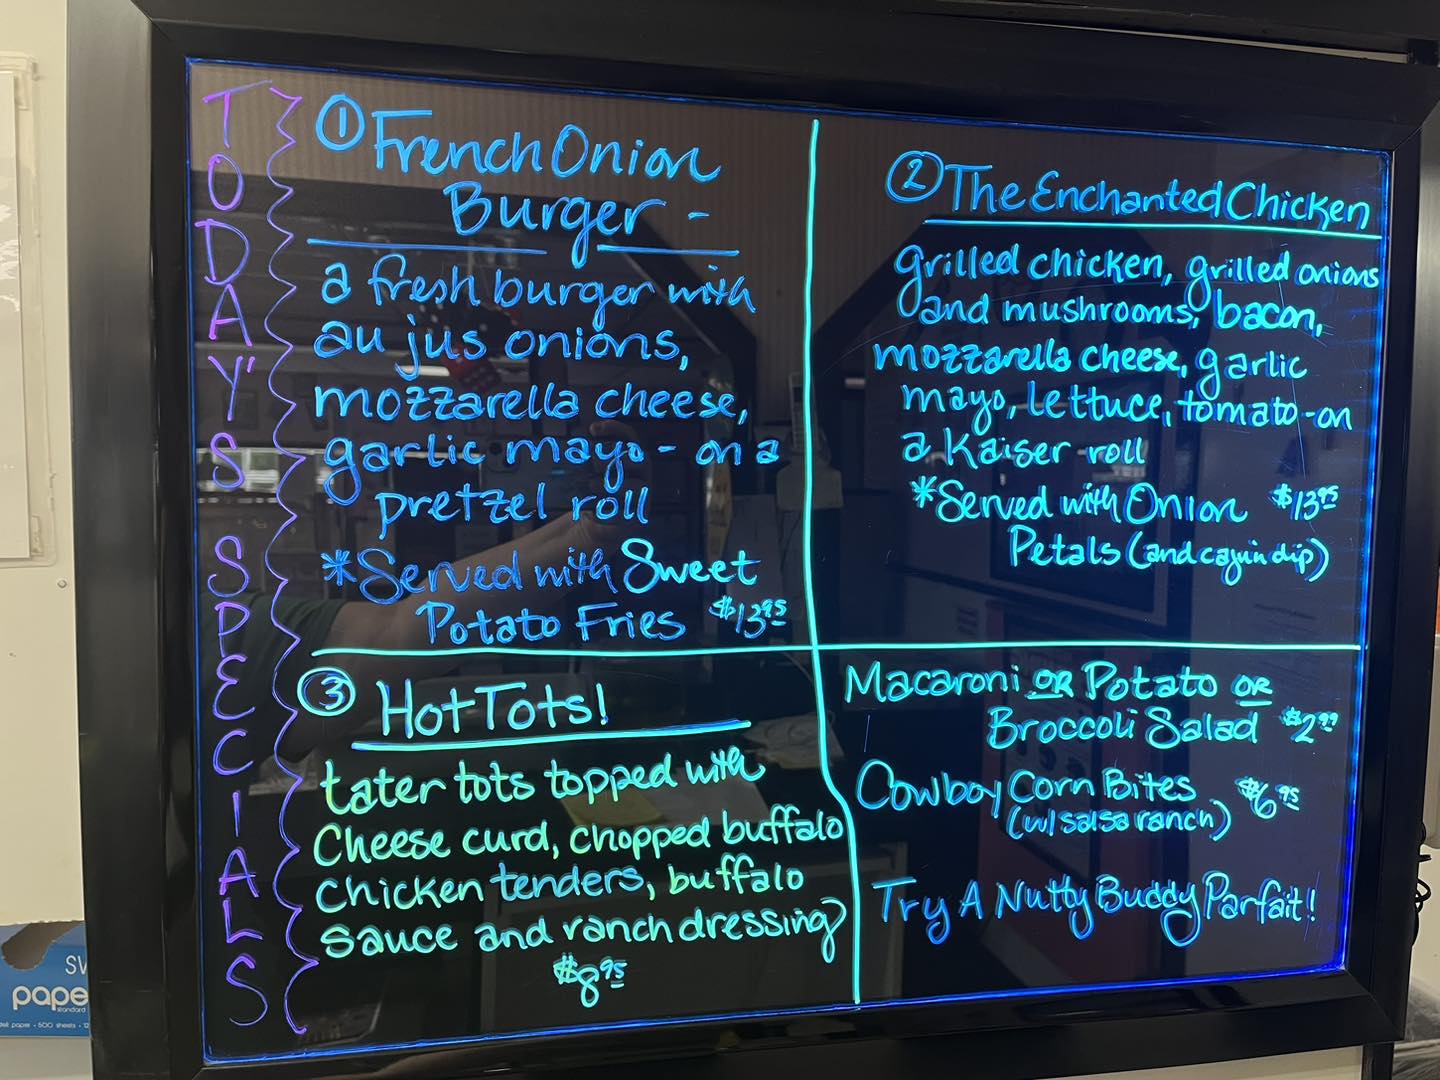 TODAY'S SPECIALS
① French Onion
Burger -
a fresh burger with
au jus onions,
mozzarella cheese,
garlic mayo - on a
pretzel roll
*Served with Sweet
Potato Fries $13.95
② The Enchanted Chicken
grilled chicken, grilled onions
and mushrooms, bacon,
mozzarella cheese, garlic
mayo, lettuce, tomato - on
a Kaiser roll
*Served with Onion $13.95
Petals (and cajun dip)
③ Hot Tots!
tater tots topped with
Cheese curd, chopped buffalo
chicken tenders, buffalo
sauce and ranch dressing
$8.95
Macaroni OR Potato OR
Broccoli Salad $2.99
Cowboy Corn Bites $6.95
(w/ salsa ranch)
Try A Nutty Buddy Parfait!
pape
standard
deli paper • 500 sheets • 12